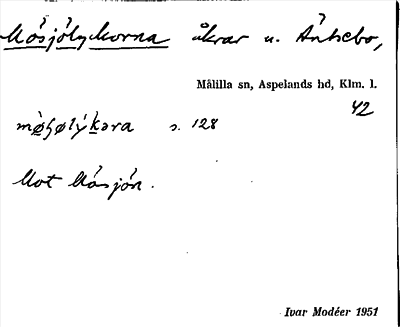 Mösjölyckorna åkrar u. Äntsebo,
Målilla sn, Aspelands hd, Klm. l.
42
s. 128
Mot Mösjön.
Ivar Modéer 1951